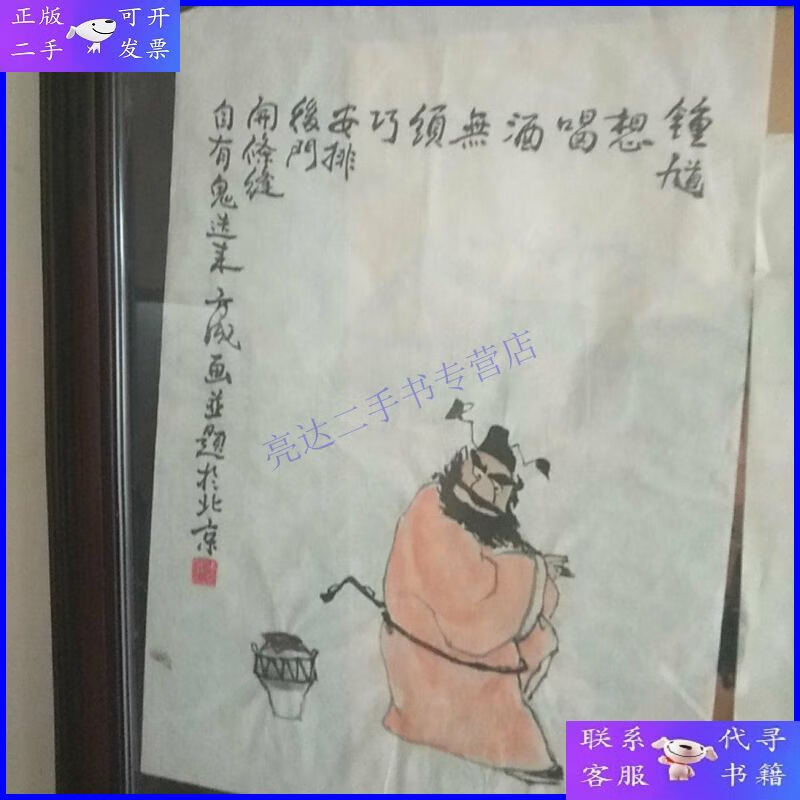 正版 可开
二手 发票
鍾馗
想
喝
酒
無
須
巧
安排
後門
開條縫
自有鬼送来 方成画並題於北京
亮达二手书专营店
联系 代寻
客服 书籍